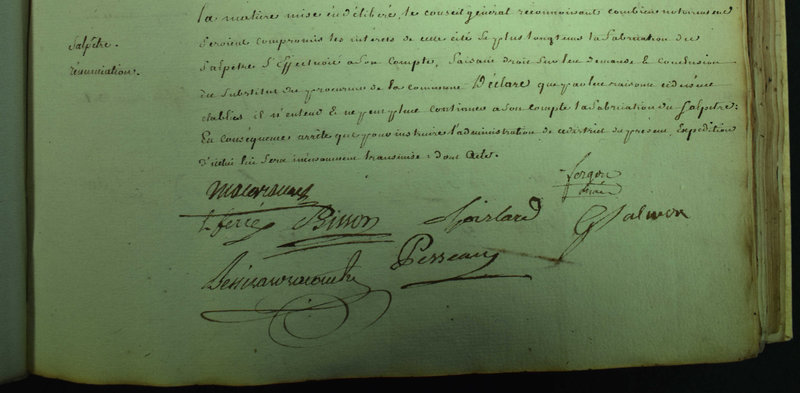 la matière mise en délibéré, le conseil général reconnoissant combien notoirement
Salpêtre.
rénunciation.
seroient compromis les intérets de cette cité si plus longtems la fabrication du
salpêtre s'effectuoit a son compte, faisant droit sur les demande & conclusion
du substitut du procureur de la commune Déclare que par les raisons cidessus
etablies il n'entend & ne peut plus continuer a son compte la fabrication du salpêtre;
En conséquence arrête que pour instruire l'administration de cedistrict du présent, Expédition
d'icelui lui sera incessamment transmise; dont acte.
forgon
ferré Bisson Salmon
Perseau